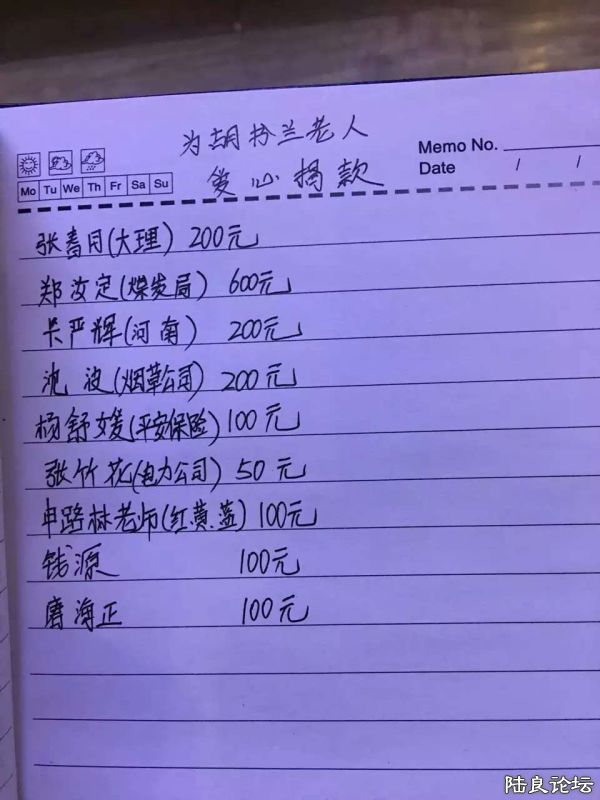 为胡粉兰老人
爱心捐款
Memo No.
Date / /
Mo Tu We Th Fr Sa Su
张春月(大理) 200元
郑汝定(煤炭局) 600元
严辉(河南) 200元
沈波(烟草公司) 200元
杨舒媛(平安保险) 100元
张竹花(电力公司) 50元
申路林老师(红黄蓝) 100元
钱源 100元
唐海正 100元
陆良论坛